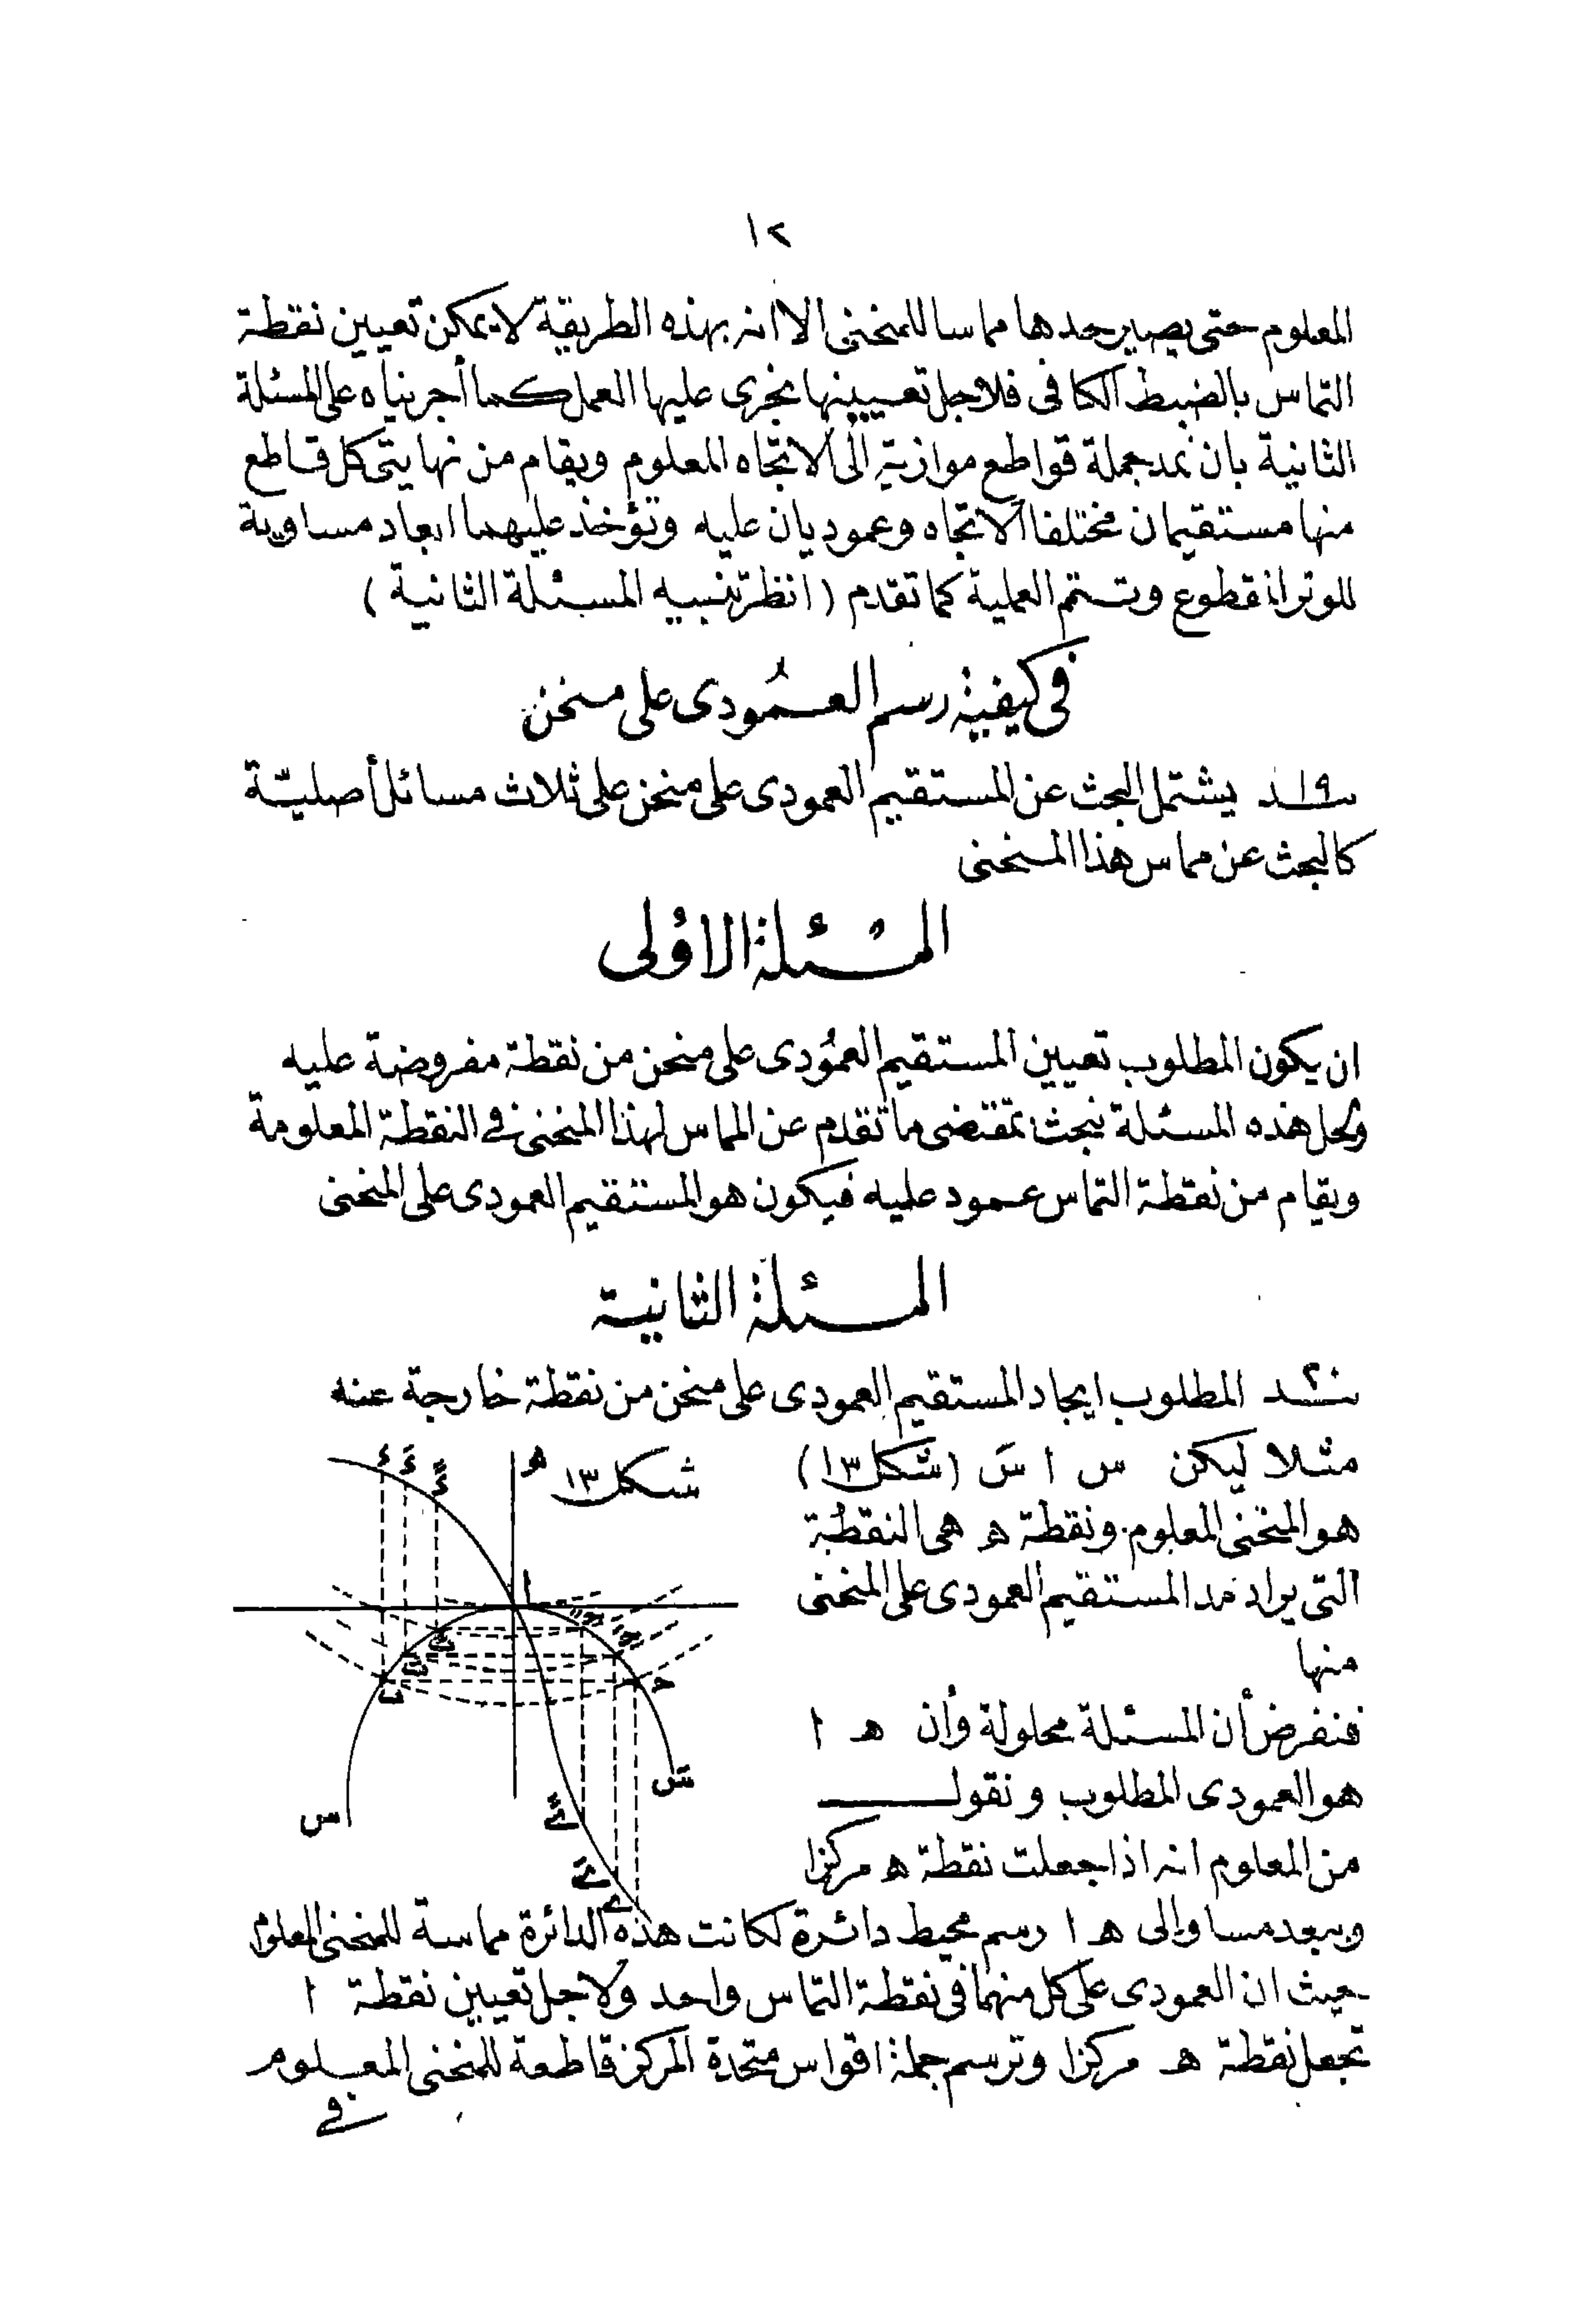 ١٢
المعلوم حتى يصير حدها مماسا للمنحنى الا انه بهذه الطريقة لا يمكن تعيين نقطة
التماس بالضبط الكافى فلاجل تعيينها نجرى عليها العمل كما أجريناه على المسئلة
الثانية بان نمد جملة قواطع موازية الى الاتجاه المعلوم ويقام من نهايتى كل قاطع
منها مستقيمان مختلفا الاتجاه وعموديان عليه وتؤخذ عليهما ابعاد مساوية
للوتر المقطوع وتتم العملية كما تقدم (انظر تنبيه المسئلة الثانية)
فى كيفية رسم العمودى على منحن
١٩ يشتمل البحث عن المستقيم العمودى على منحن على ثلاث مسائل أصلية
كالبحث عن مماس هذا المنحنى
المسئلة الاولى
ان يكون المطلوب تعيين المستقيم العمودى على منحن من نقطة مفروضة عليه
ولحل هذه المسئلة نبحث بمقتضى ما تقدم عن المماس لهذا المنحنى فى النقطة المعلومة
ويقام من نقطة التماس عمود عليه فيكون هو المستقيم العمودى على المنحنى
المسئلة الثانية
٢٠ المطلوب ايجاد المستقيم العمودى على منحن من نقطة خارجة عنه
مثلا ليكن س ا سَ (شكل ١٣)
هو المنحنى المعلوم ونقطة ه هى النقطة
التى يراد مد المستقيم العمودى على المنحنى
منها
فنفرض أن المسئلة محلولة وأن ه ا
هو العمودى المطلوب ونقول
من المعلوم انه اذا جعلت نقطة ه مركزا
وببعد مساو الى ه ا رسم محيط دائرة لكانت هذه الدائرة مماسة للمنحنى المعلوم
حيث ان العمودى على كل منهما فى نقطة التماس واحد ولاجل تعيين نقطة ا
تجعل نقطة ه مركزا وترسم جملة اقواس متحدة المركز قاطعة للمنحنى المعلوم
فى
شكل ١٣
ه
ا
س
سَ